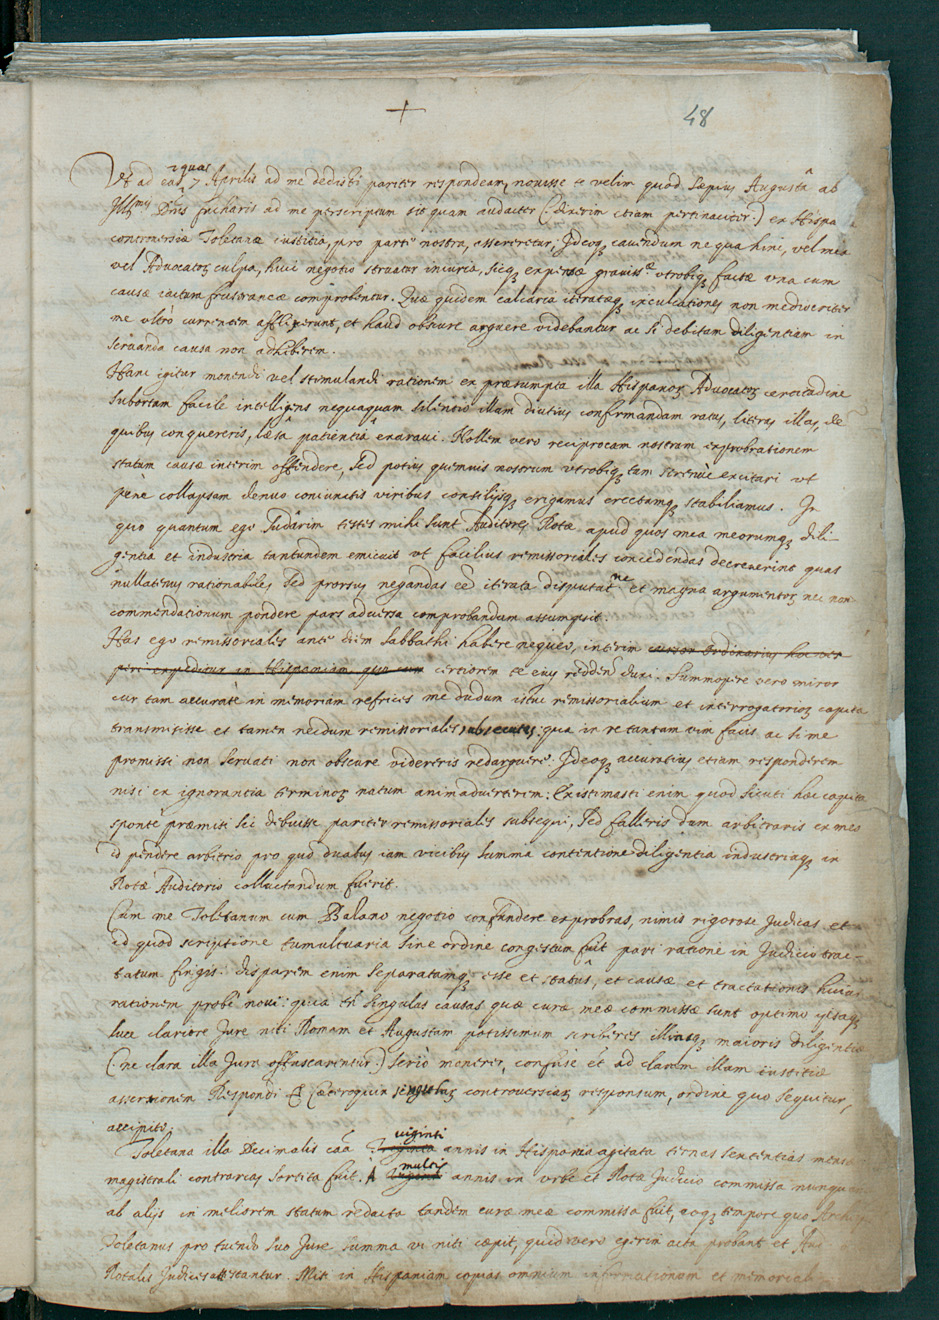 + 48
quas
Ut ad eas 7 Aprilis ad me dedisti pariter respondeam, nouisse te velim quod sæpius Augustâ ab
Illmis Dnis fuccharis ad me perscriptum sit quam audacter (: dixerim etiam pertinaciter :) ex Hispa
controuersiæ Toletanæ iustitia, pro parte nostra, assereretur; Ideoq cauendum ne qua hinc, vel mea
vel Aduocatoꝝ culpa, huic negotio struatur iniuria, sicq expensæ grauissæ vtrobiq factæ vna cum
causæ iactura frustraneæ comprobentur. Quæ quidem calcaria iteratæq inculcationes non mediocriter
me vltrò currentem afflixerunt, et haud obscure arguere videbantur ac si debitam diligentiam in
seruanda causa non adhiberem.
Hanc igitur monendi vel stimulandi rationem ex præsumpta illa Hispanoꝝ Aduocatoꝝ certitudine
subortam facile intelligens nequaquam silentio illam diutius confirmandam ratus, literas illas, de
quibus conquereris, læsâ patientiâ exaraui. Nollem vero reciprocam nostram exprobrationem
statum causæ interim offendere, sed potius quemuis nostrum vtrobiq tam strenuè excitari vt
penè collapsam denuo coniunctis viribus consilijsq erigamus erectamq stabiliamus. In
quo quantum ego sudârim testes mihi sunt Auditores Rotæ apud quos mea meorumq dili-
gentia et industria tantundem emicuit vt facilius remissoriales concedendas decreuerint quas
nullatenus rationabiles sed prorsus negandas eê iterata disputatne et magna argumentoꝝ nec non
commendationum pondere pars aduersa comprobandum assumpsit.
Has ego remissoriales ante diem Sabbathi habere nequeo, interim cursor ordinarius hoc ves
peri expeditur in Hispaniam quo cum certiorem te eius reddendũ duxi. Summopere vero miror
cur tam accurate in memoriam refrices me dudum istuc remissorialium et interrogatorioꝝ capita
transmisisse et tamen necdum remissoriales subsecutas: qua in re tantam vim facis ac si me
promissi non seruati non obscure videreris redarguere. Ideoq accuratius etiam responderem
nisi ex ignorantia terminoꝝ natum animaduerterem: Existimasti enim quod sicuti hæc capita
sponte præmisi sic debuisse pariter remissoriales subsequi, sed falleris dum arbitraris ex meo
id pendere arbitrio pro quo duabus iam vicibus summa contentione diligentia industriaq in
Rotæ Auditorio colluctandum fuerit.
Cum me Toletanum cum Balano negotio confundere exprobras, nimis rigorose Judicas et
id quod scriptione tumultuaria sine ordine congestum fuit pari ratione in Judicio trac-
tatum fingis. disparem enim separatamq esse et statûs, et causæ et tractationis huius
rationem probe noui: quia tñ singulas causas quæ curæ meæ commissæ sunt optimo ipsaq
luce clariore Jure niti Romam et Augustam potissimum scriberes illinsq maioris diligentiæ
(: ne clara illa Jura offuscarentur :) serio monerer, confuse et ad claram illam iustitiæ
assertionem Respondi Et Cæteroquin singulaꝝ controuersiaꝝ responsum, ordine quo sequitur,
accipito.
viginti
Toletana illa Decimalis caâ Triginta annis in Hispania agitata ternas sententias
multis
magistrali contrarias sortita fuit. A annis in vrbe et Rotæ Judicio commissa nunquam
ab alijs in meliorem statum redacta tandem curæ meæ commissa fuit, eoq tempore quo Archiep
Toletanus pro tuendo suo Jure summa vi niti cæpit, quid vero egerim acta probant et
Rotalis Judices attestantur. Misi in Hispaniam copias omnium informationum et memoriali